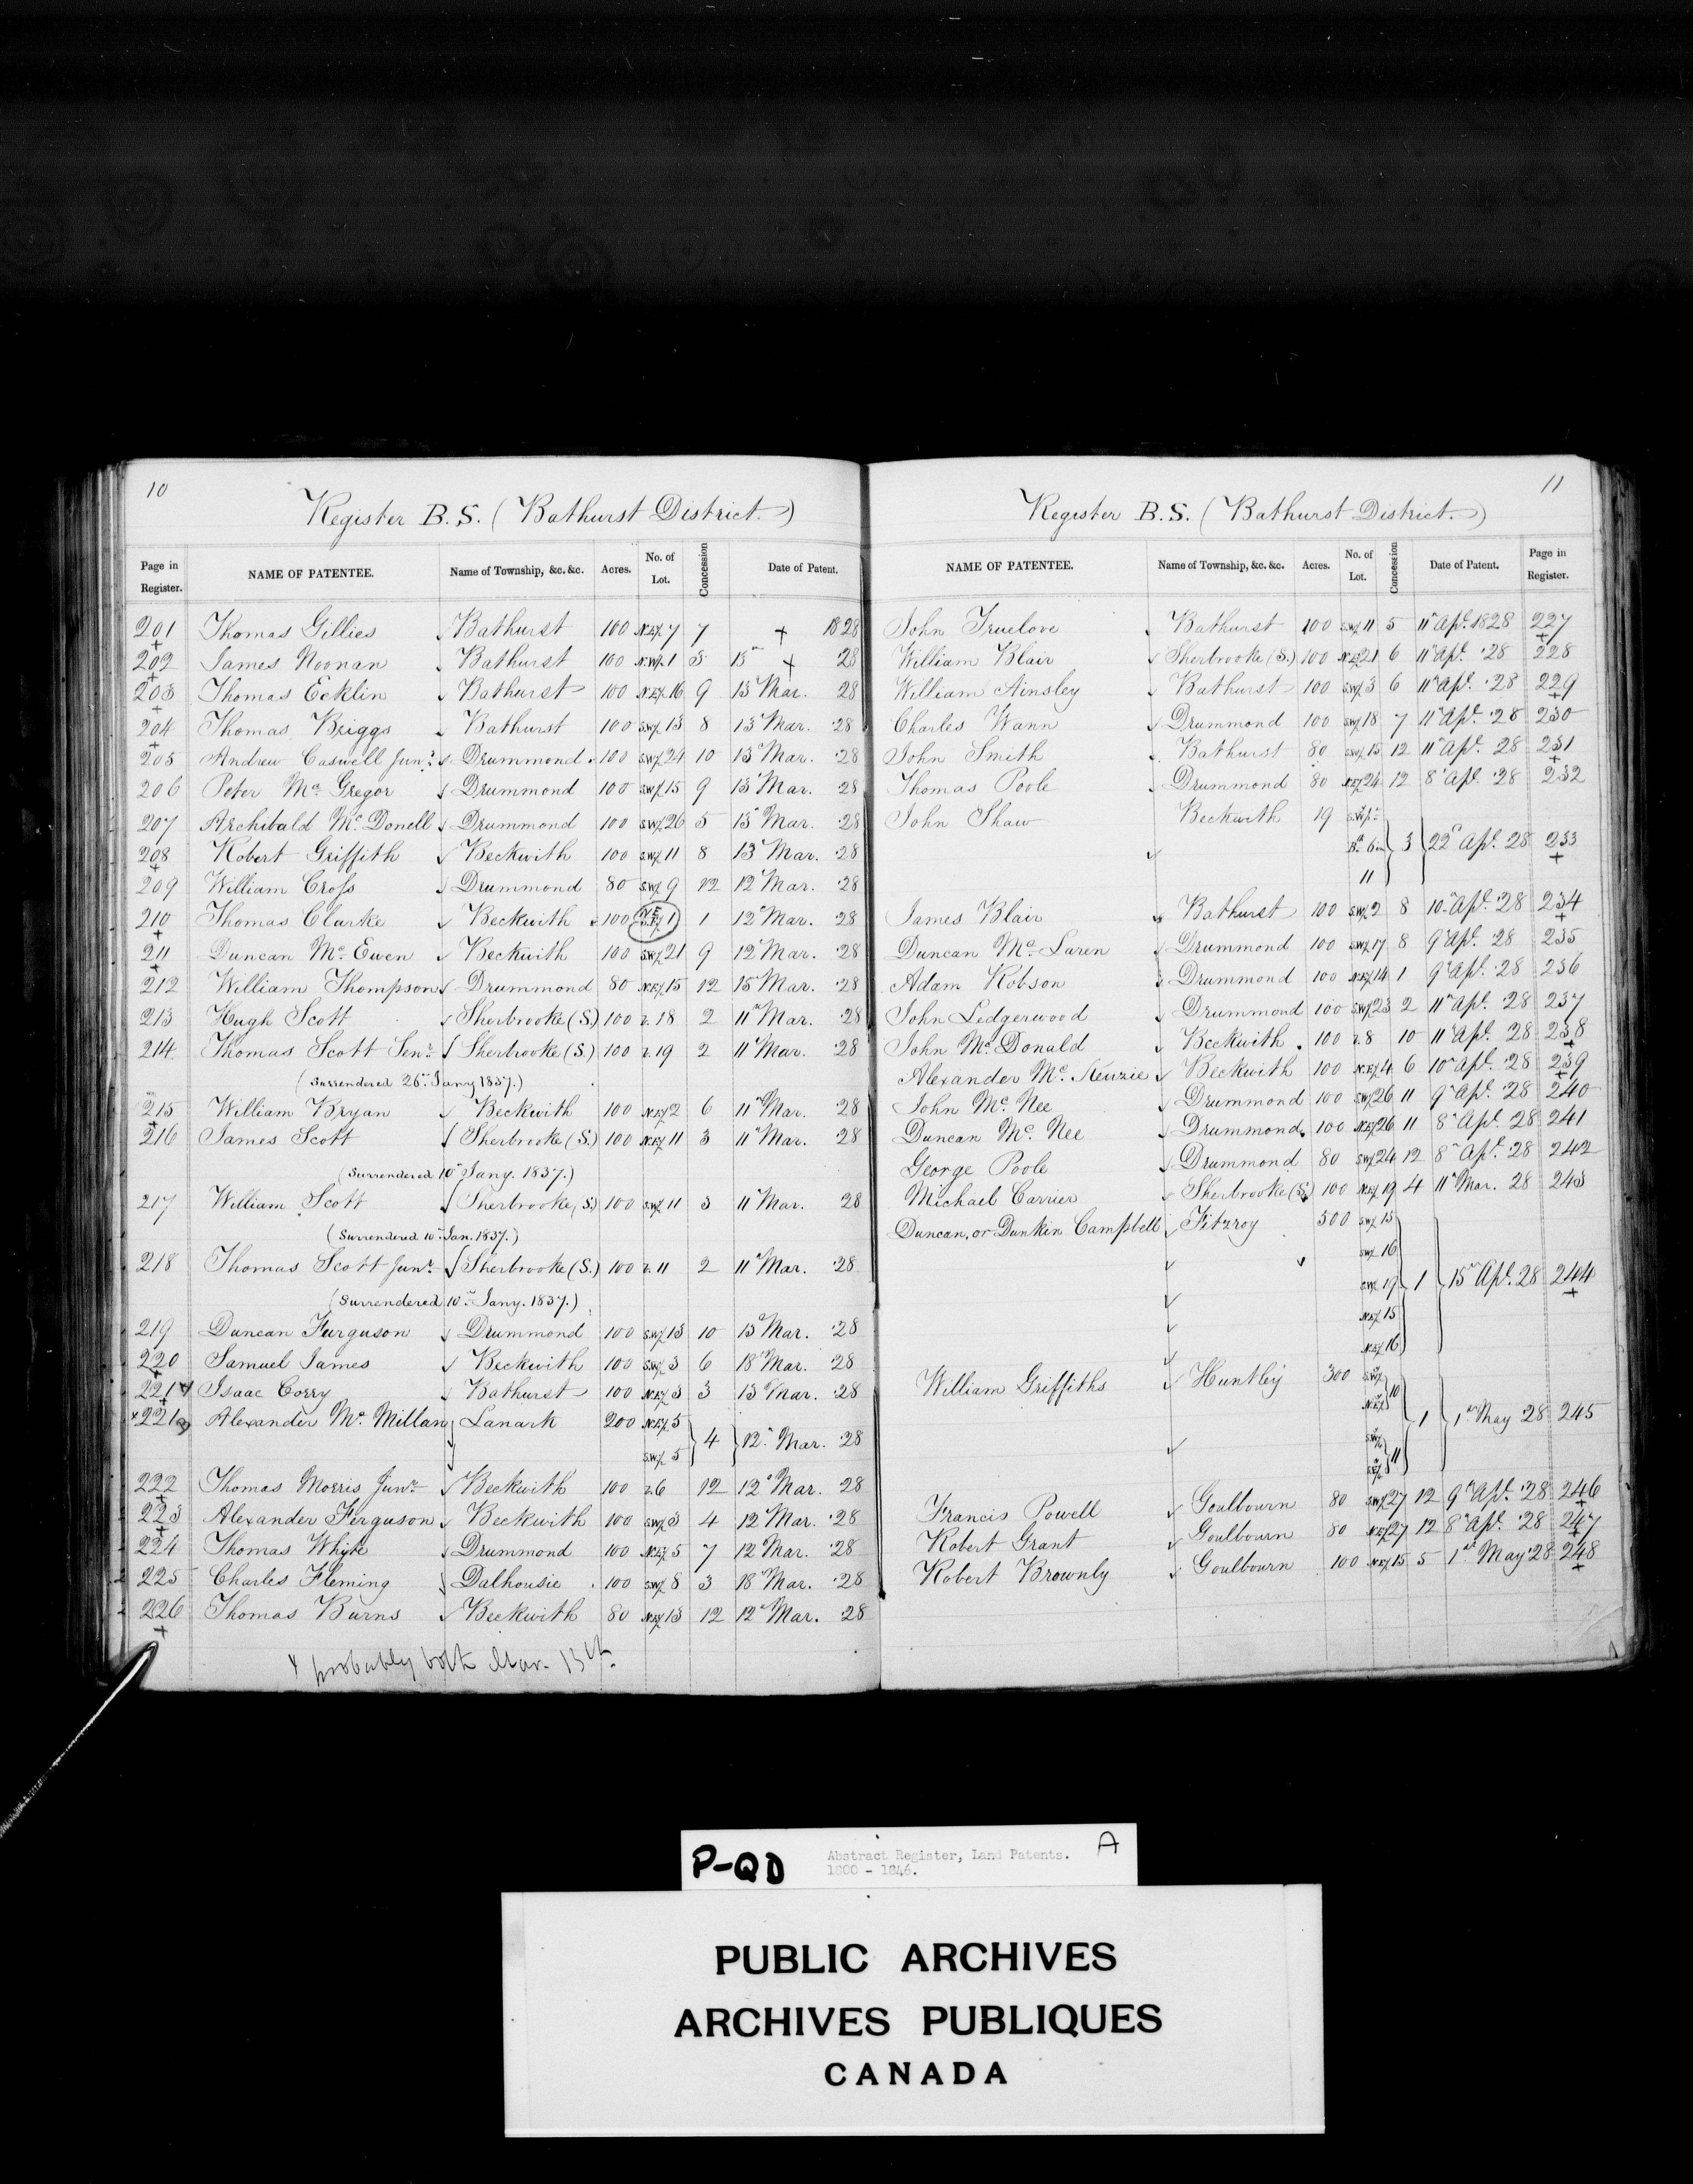 10
Register B.S. (Bathurst District.)
Page in Register. NAME OF PATENTEE. Name of Township, &c. &c. Acres. No. of Lot. Concession Date of Patent.
201 Thomas Gillies Bathurst 100 N.E.½ 7 7 + 1828
202 James Noonan Bathurst 100 N.W.½ 1 3 13th + '28
203 Thomas Ecklin Bathurst 100 N.E.½ 16 9 13th Mar. 28
204 Thomas Briggs Bathurst 100 S.W.½ 13 8 13th Mar. '28
205 Andrew Caswell Junr. Drummond 100 S.W.½ 24 10 13th Mar. '28
206 Peter Mc Gregor Drummond 100 S.W.½ 15 9 13th Mar. 28
207 Archibald Mc Donell Drummond 100 S.W.½ 26 5 13th Mar. '28
208 Robert Griffith Beckwith 100 S.W.½ 11 8 13th Mar. '28
209 William Cross Drummond 80 S.W.½ 9 12 12th Mar. '28
210 Thomas Clarke Beckwith 100 N.E. 1 1 12th Mar. '28
211 Duncan Mc Ewen Beckwith 100 S.W.½ 21 9 12th Mar. '28
212 William Thompson Drummond 80 N.E.½ 15 12 15th Mar. '28
213 Hugh Scott Sherbrooke (S.) 100 r. 18 2 11th Mar. '28
214 Thomas Scott Senr. Sherbrooke (S.) 100 r. 19 2 11th Mar. '28
(Surrendered 26th Jany 1837.)
215 William Bryan Beckwith 100 N.E.½ 2 6 11th Mar. 28
216 James Scott Sherbrooke (S.) 100 N.E.½ 11 3 11th Mar. 28
(Surrendered 10th Jany. 1837.)
217 William Scott Sherbrooke (S.) 100 S.W.½ 11 3 11th Mar. 28
(Surrendered 10th Jan. 1837.)
218 Thomas Scott Junr. Sherbrooke (S.) 100 r. 11 2 11th Mar. '28
(Surrendered 10th Jany. 1837.)
219 Duncan Furguson Drummond 100 S.W.½ 13 10 13th Mar. '28
220 Samuel James Beckwith 100 S.W.½ 3 6 18th Mar. '28
221A Isaac Corry Bathurst 100 N.E.½ 3 3 13th Mar. '28
x 221B Alexander Mc Millan Lanark 200 N.E.½ 5
S.W.½ 5 4 12th Mar. 28
222 Thomas Morris Junr. Beckwith 100 r. 6 12 12th Mar. 28
223 Alexander Ferguson Beckwith 100 S.W.½ 3 4 12th Mar. '28
224 Thomas Whyte Drummond 100 N.E.½ 5 7 12 Mar. '28
225 Charles Fleming Dalhousie 100 S.W.½ 8 3 18th Mar. '28
226 Thomas Burns Beckwith 80 N.E.½ 13 12 12th Mar. 28
+ probably both Mar. 13th.
11
Register B.S. (Bathurst District.)
NAME OF PATENTEE. Name of Township, &c. &c. Acres. No. of Lot. Concession Date of Patent. Page in Register.
John Truelove Bathurst 100 S.W.½ 11 5 11th Apl. 1828 227
William Blair Sherbrooke (S.) 100 N.E. 21 6 11th Apl. '28 228
William Ainsley Bathurst 100 S.W.½ 3 6 11th Apl. '28 229
Charles Wann Drummond 100 S.W.½ 18 7 11th Apl. '28 230
John Smith Bathurst 80 S.W.½ 15 12 11th Apl. 28 231
Thomas Poole Drummond 80 N.E.½ 24 12 8th Apl. '28 232
John Shaw Beckwith 19 S.W.pt.
3 22d Apl. 28 233
11
James Blair Bathurst 100 S.W.½ 2 8 10th Apl. '28 234
Duncan Mc Laren Drummond 100 S.W.½ 17 8 9th Apl. '28 235
Adam Robson Drummond 100 N.E.½ 14 1 9th Apl. '28 236
John Ledgerwood Drummond 100 S.W.½ 23 2 11th Apl. '28 237
John Mc Donald Beckwith 100 r. 8 10 11th Apl. 28 238
Alexander Mc Kenzie Beckwith 100 N.E.½ 4 6 10th Apl. '28 239
John Mc Nee Drummond 100 S.W.½ 26 11 9th Apl. '28 240
Duncan Mc Nee Drummond 100 N.E.½ 26 11 8th Apl. 28 241
George Poole Drummond 80 S.W.½ 24 12 8th Apl. '28 242
Michael Carrier Sherbrooke (S.) 100 N.E.½ 19 4 11th Mar. 28 243
Duncan, or Dunkin Campbell Fitzroy 500 S.W.½ 15
S.W.½ 16
S.W.½ 17 1 15th Apl. 28 244
N.E.½ 15
N.E.½ 16
William Griffiths Huntley 300 S.W.½
N.E.½ 10
1 1st May '28 245
S.W.½
11
Francis Powell Goulbourn 80 S.W.½ 27 12 9th Apl. '28 246
Robert Grant Goulbourn 80 N.E.½ 27 12 8th Apl. '28 247
Robert Brownly Goulbourn 100 N.E.½ 15 5 1st May '28 248
P-QD Abstract Register, Land Patents. A
1800 - 1846.
PUBLIC ARCHIVES
ARCHIVES PUBLIQUES
CANADA